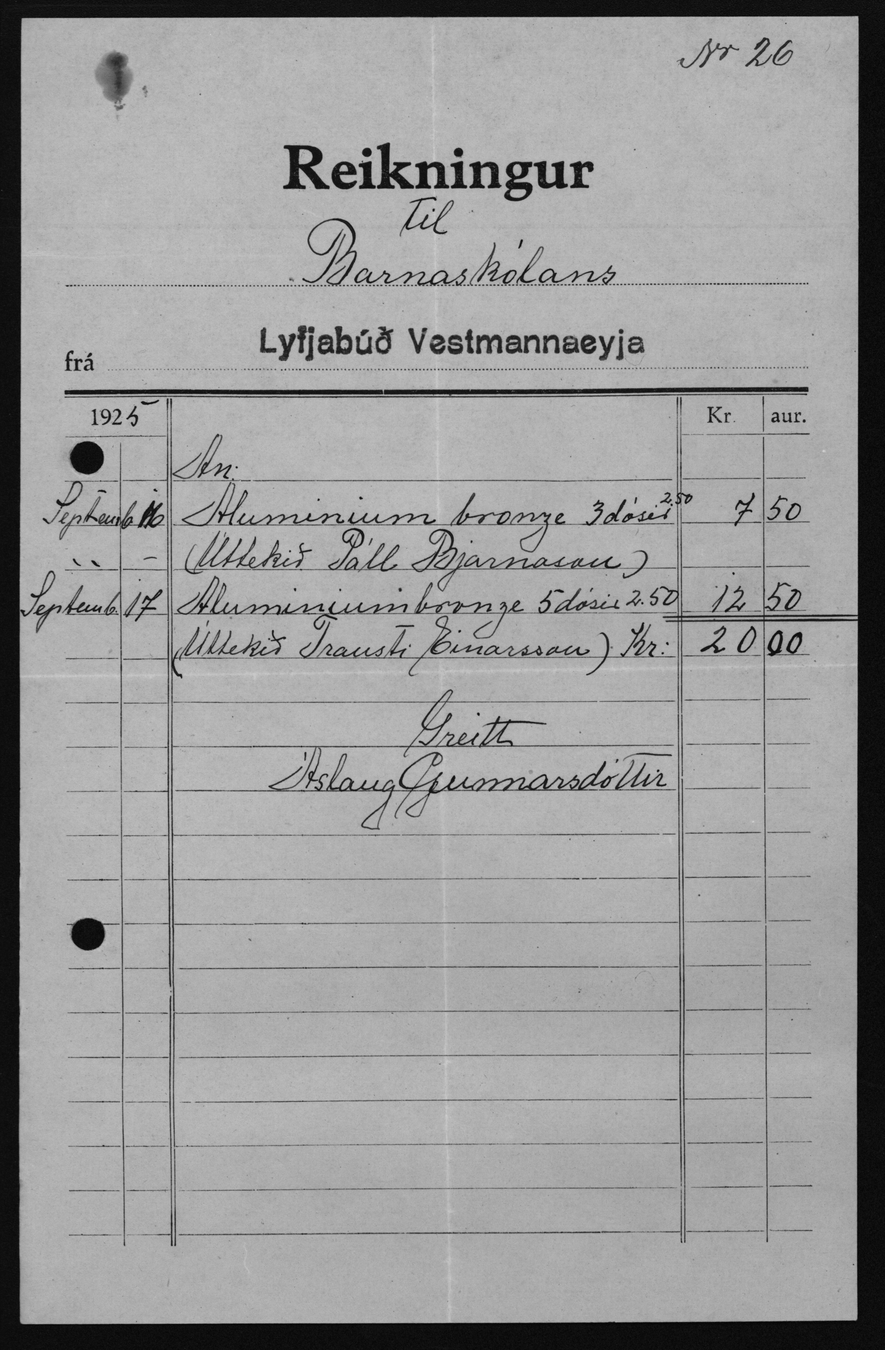 Nr 26
Reikningur
til
Barnaskólans
frá Lyfjabúð Vestmannaeyja
1925 Kr. aur.
An:
Septemb. 16 Aluminium bronze 3 dósir 2.50 7 50
" - (Úttekið Páll Bjarnason)
Septemb. 17 Aluminiumbronze 5 dósir 2.50 12 50
(Úttekið Trausti Einarsson) Kr: 20 00
Greitt
Áslaug Gunnarsdóttir